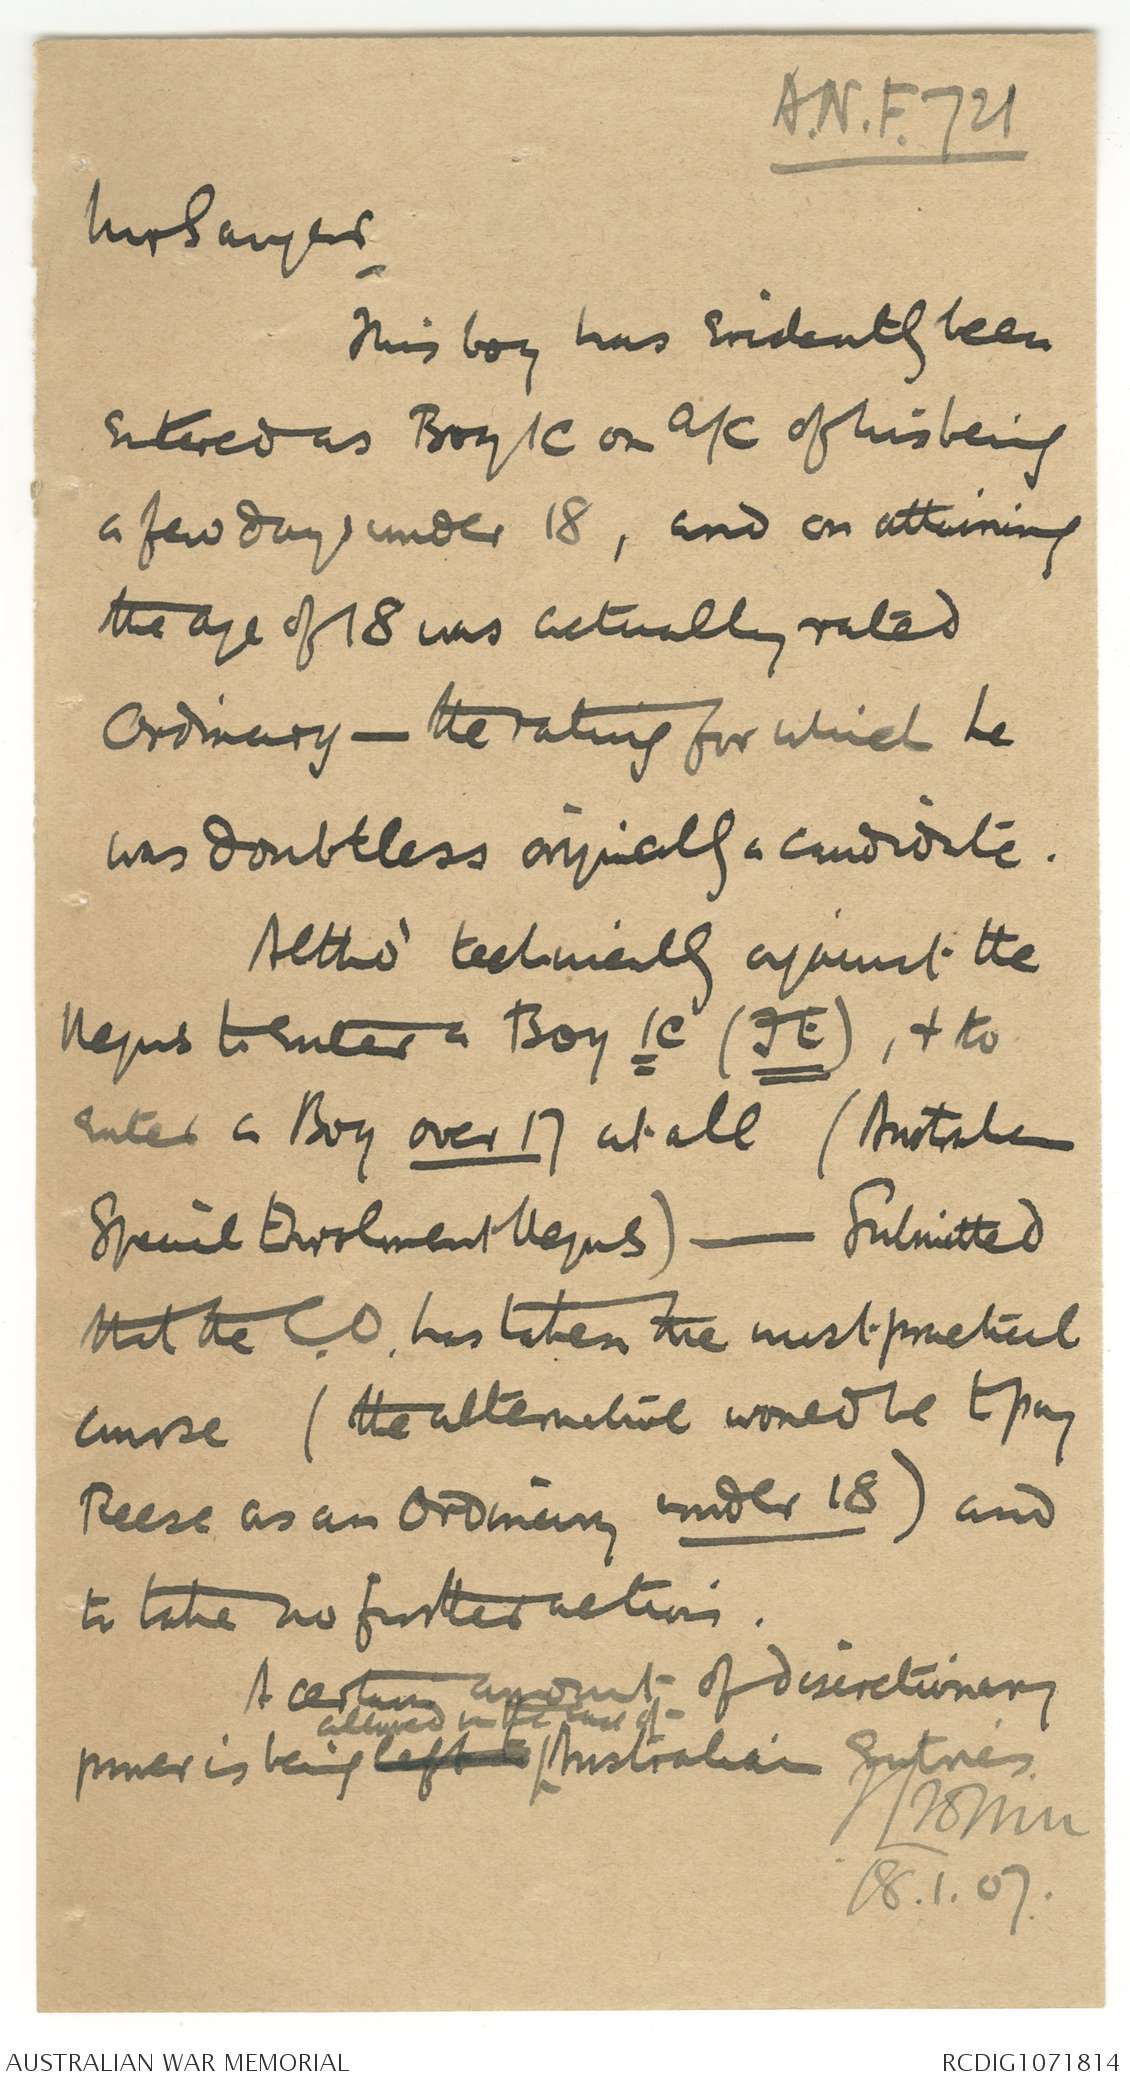 A.N.F. 721
Mr Sawyer
This boy has evidently been
entered as Boy 1C on a/c of his being
a few days under 18, and on attaining
the age of 18 was actually rated
Ordinary — the rating for which he
was doubtless originally a candidate.
Altho' technically against the
Regns to enter a Boy 1C (), + to
enter a Boy over 17 at all (Australian
Special Enrolment Regns) — Submitted
that the C.O. has taken the most practical
course (the alternative would be to pay
Reese as an Ordinary under 18) and
to take no further action.
A certain amount of discretionary
allowed in the case of
power is being left to Australian Entries.
18.1.07.
AUSTRALIAN WAR MEMORIAL
RCDIG1071814